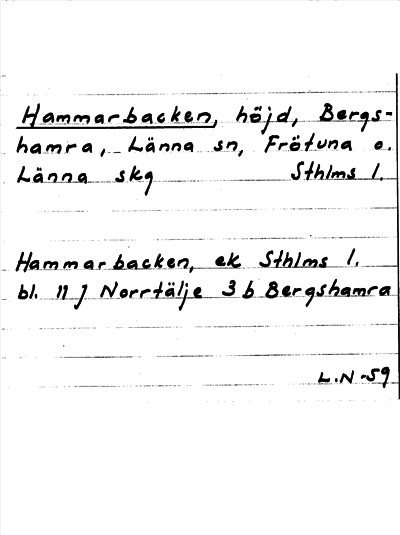 Hammarbacken, höjd, Bergs-
hamra, Länna sn, Frötuna o.
Länna skg Sthlms l.
Hammarbacken, ek Sthlms l.
bl. 11 J Norrtälje 3 b Bergshamra
L.N -59